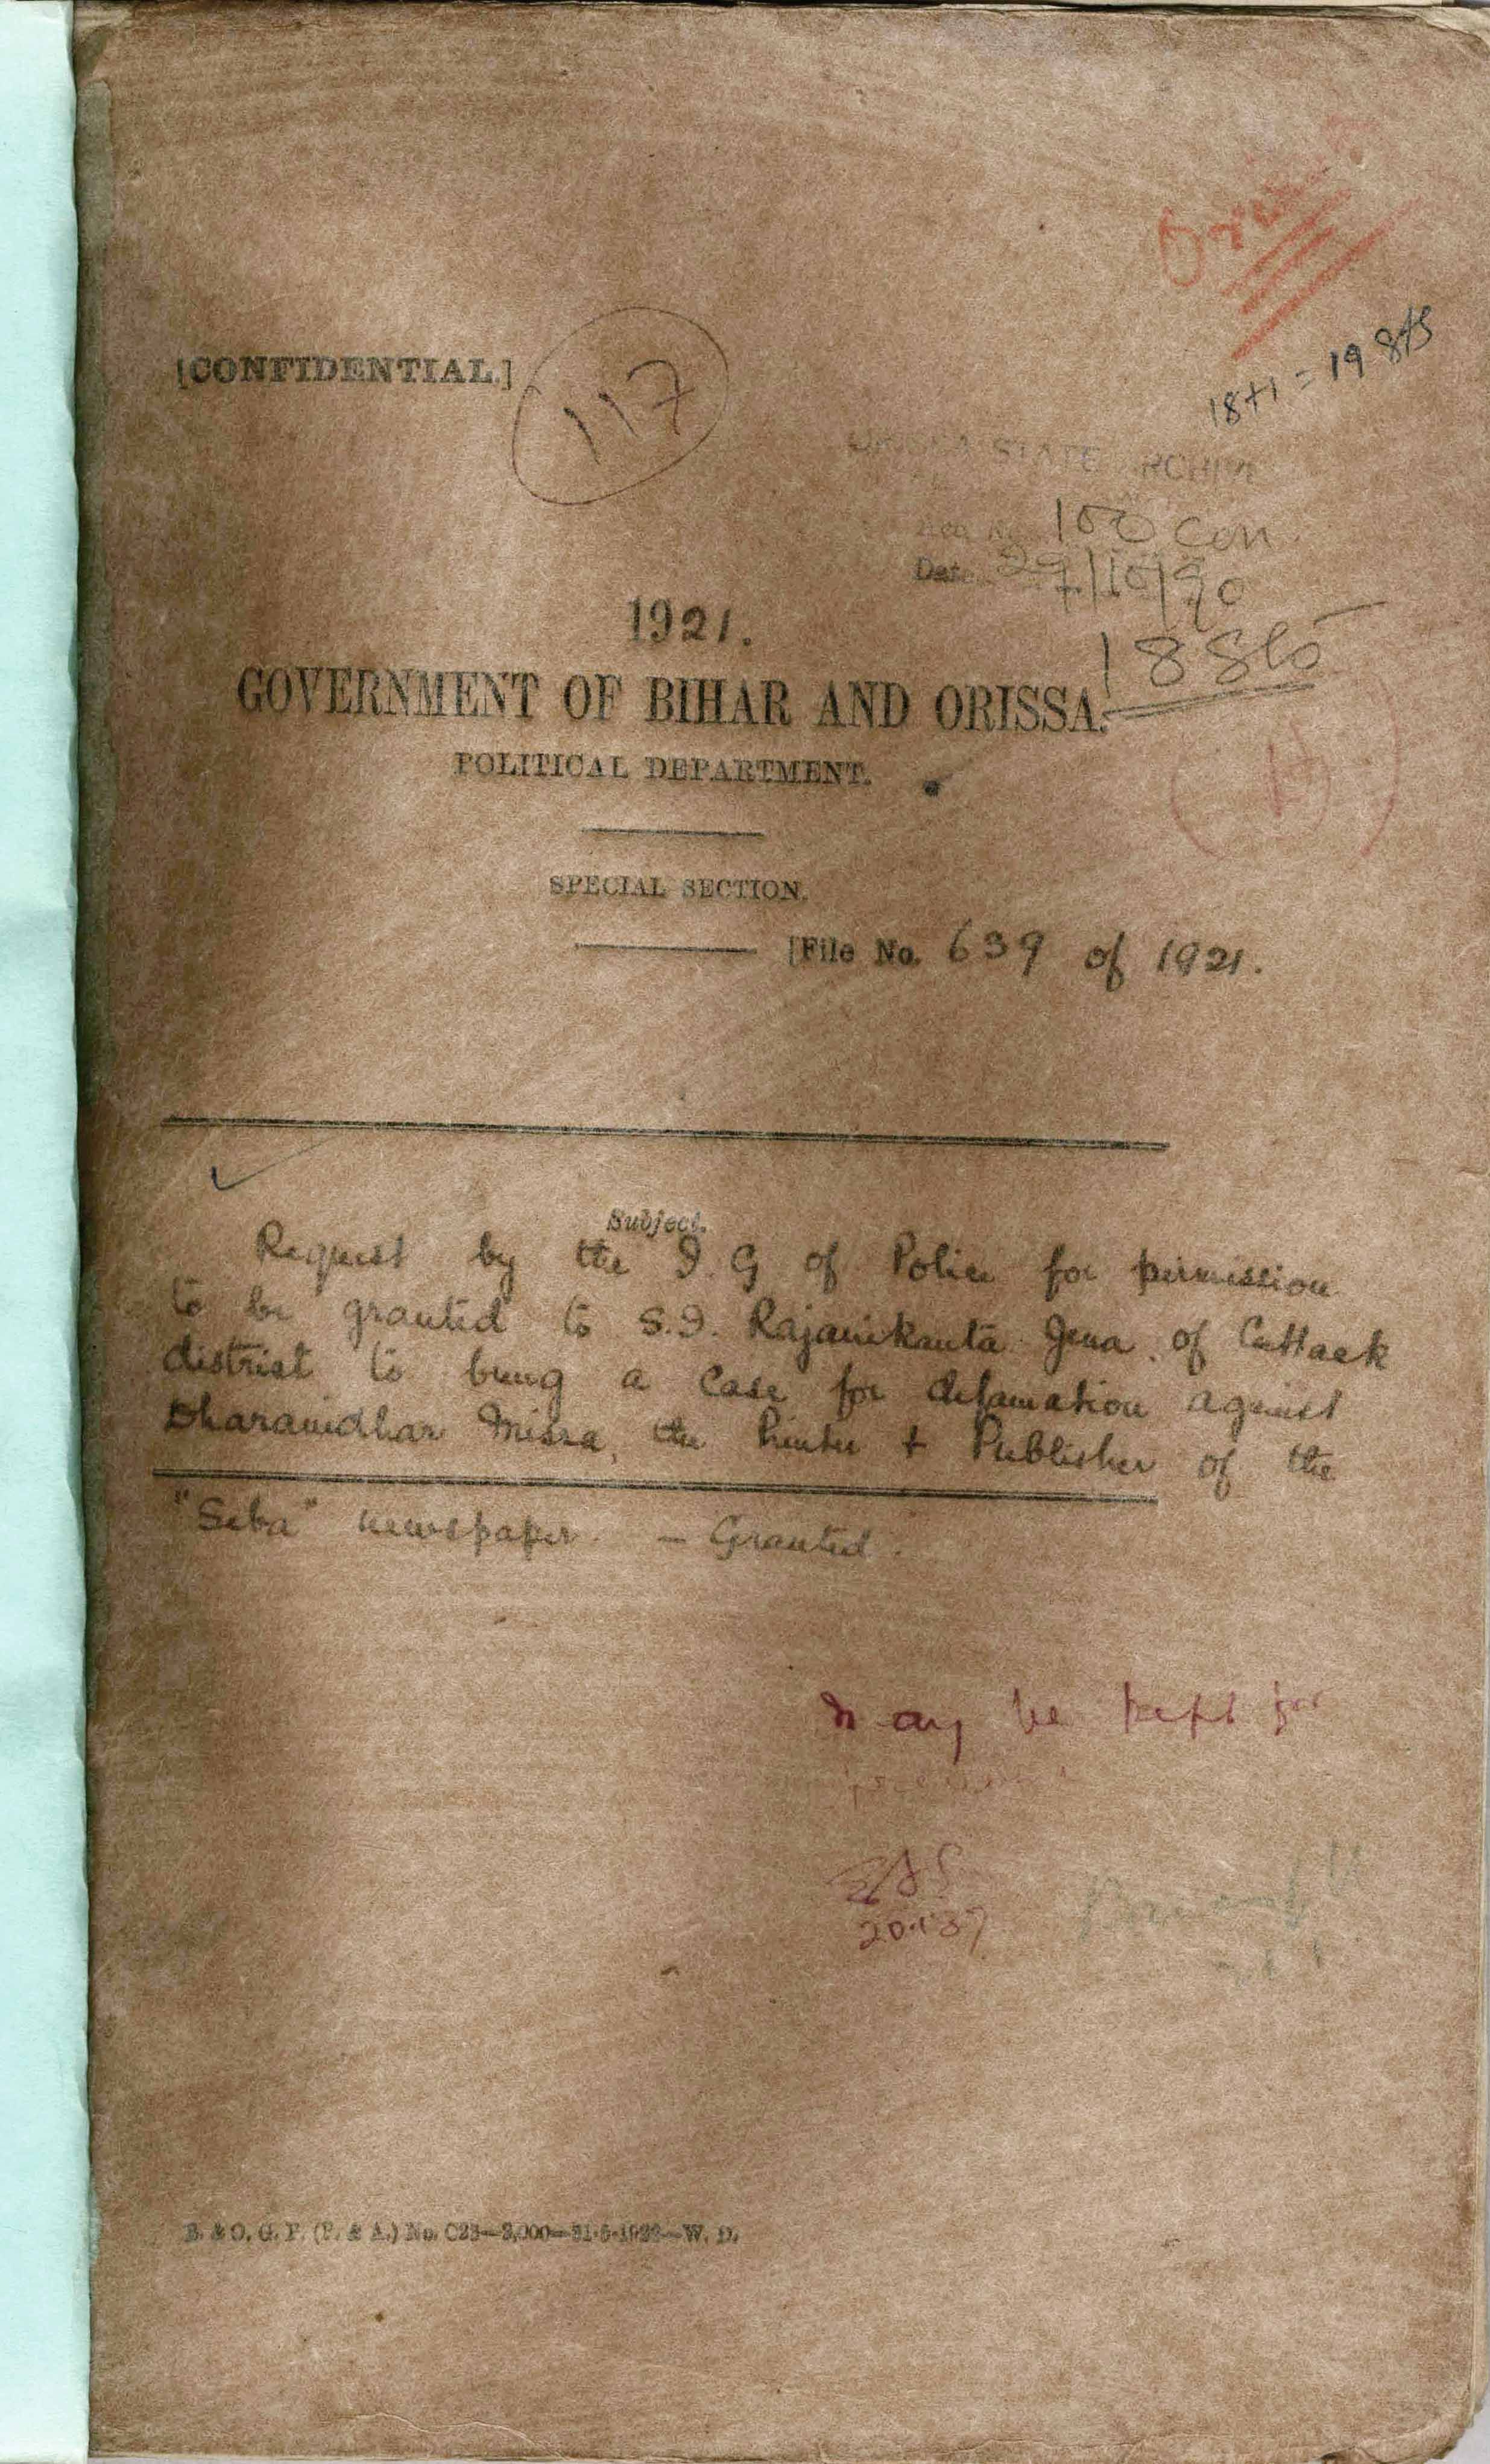 Orissa
18+1 = 19
[CONFIDENTIAL.]
117
ORISSA STATE ARCHIVE
Acq No 100 Con
Date 29/10/90
1921.
GOVERNMENT OF BIHAR AND ORISSA.
POLITICAL DEPARTMENT.
SPECIAL SECTION.
[File No. 639 of 1921.
Subject.
Request by the I. G of Police for permission
to be granted to S.I. Rajanikanta Jena of Cuttack
district to bring a case for defamation against
Dharanidhar Misra, the Printer + Publisher of the
"Seba" newspaper. - Granted.
May be kept for
B. & O. G. P. (P. & A.) No. C23—2,000—31-5-1922—W. D.